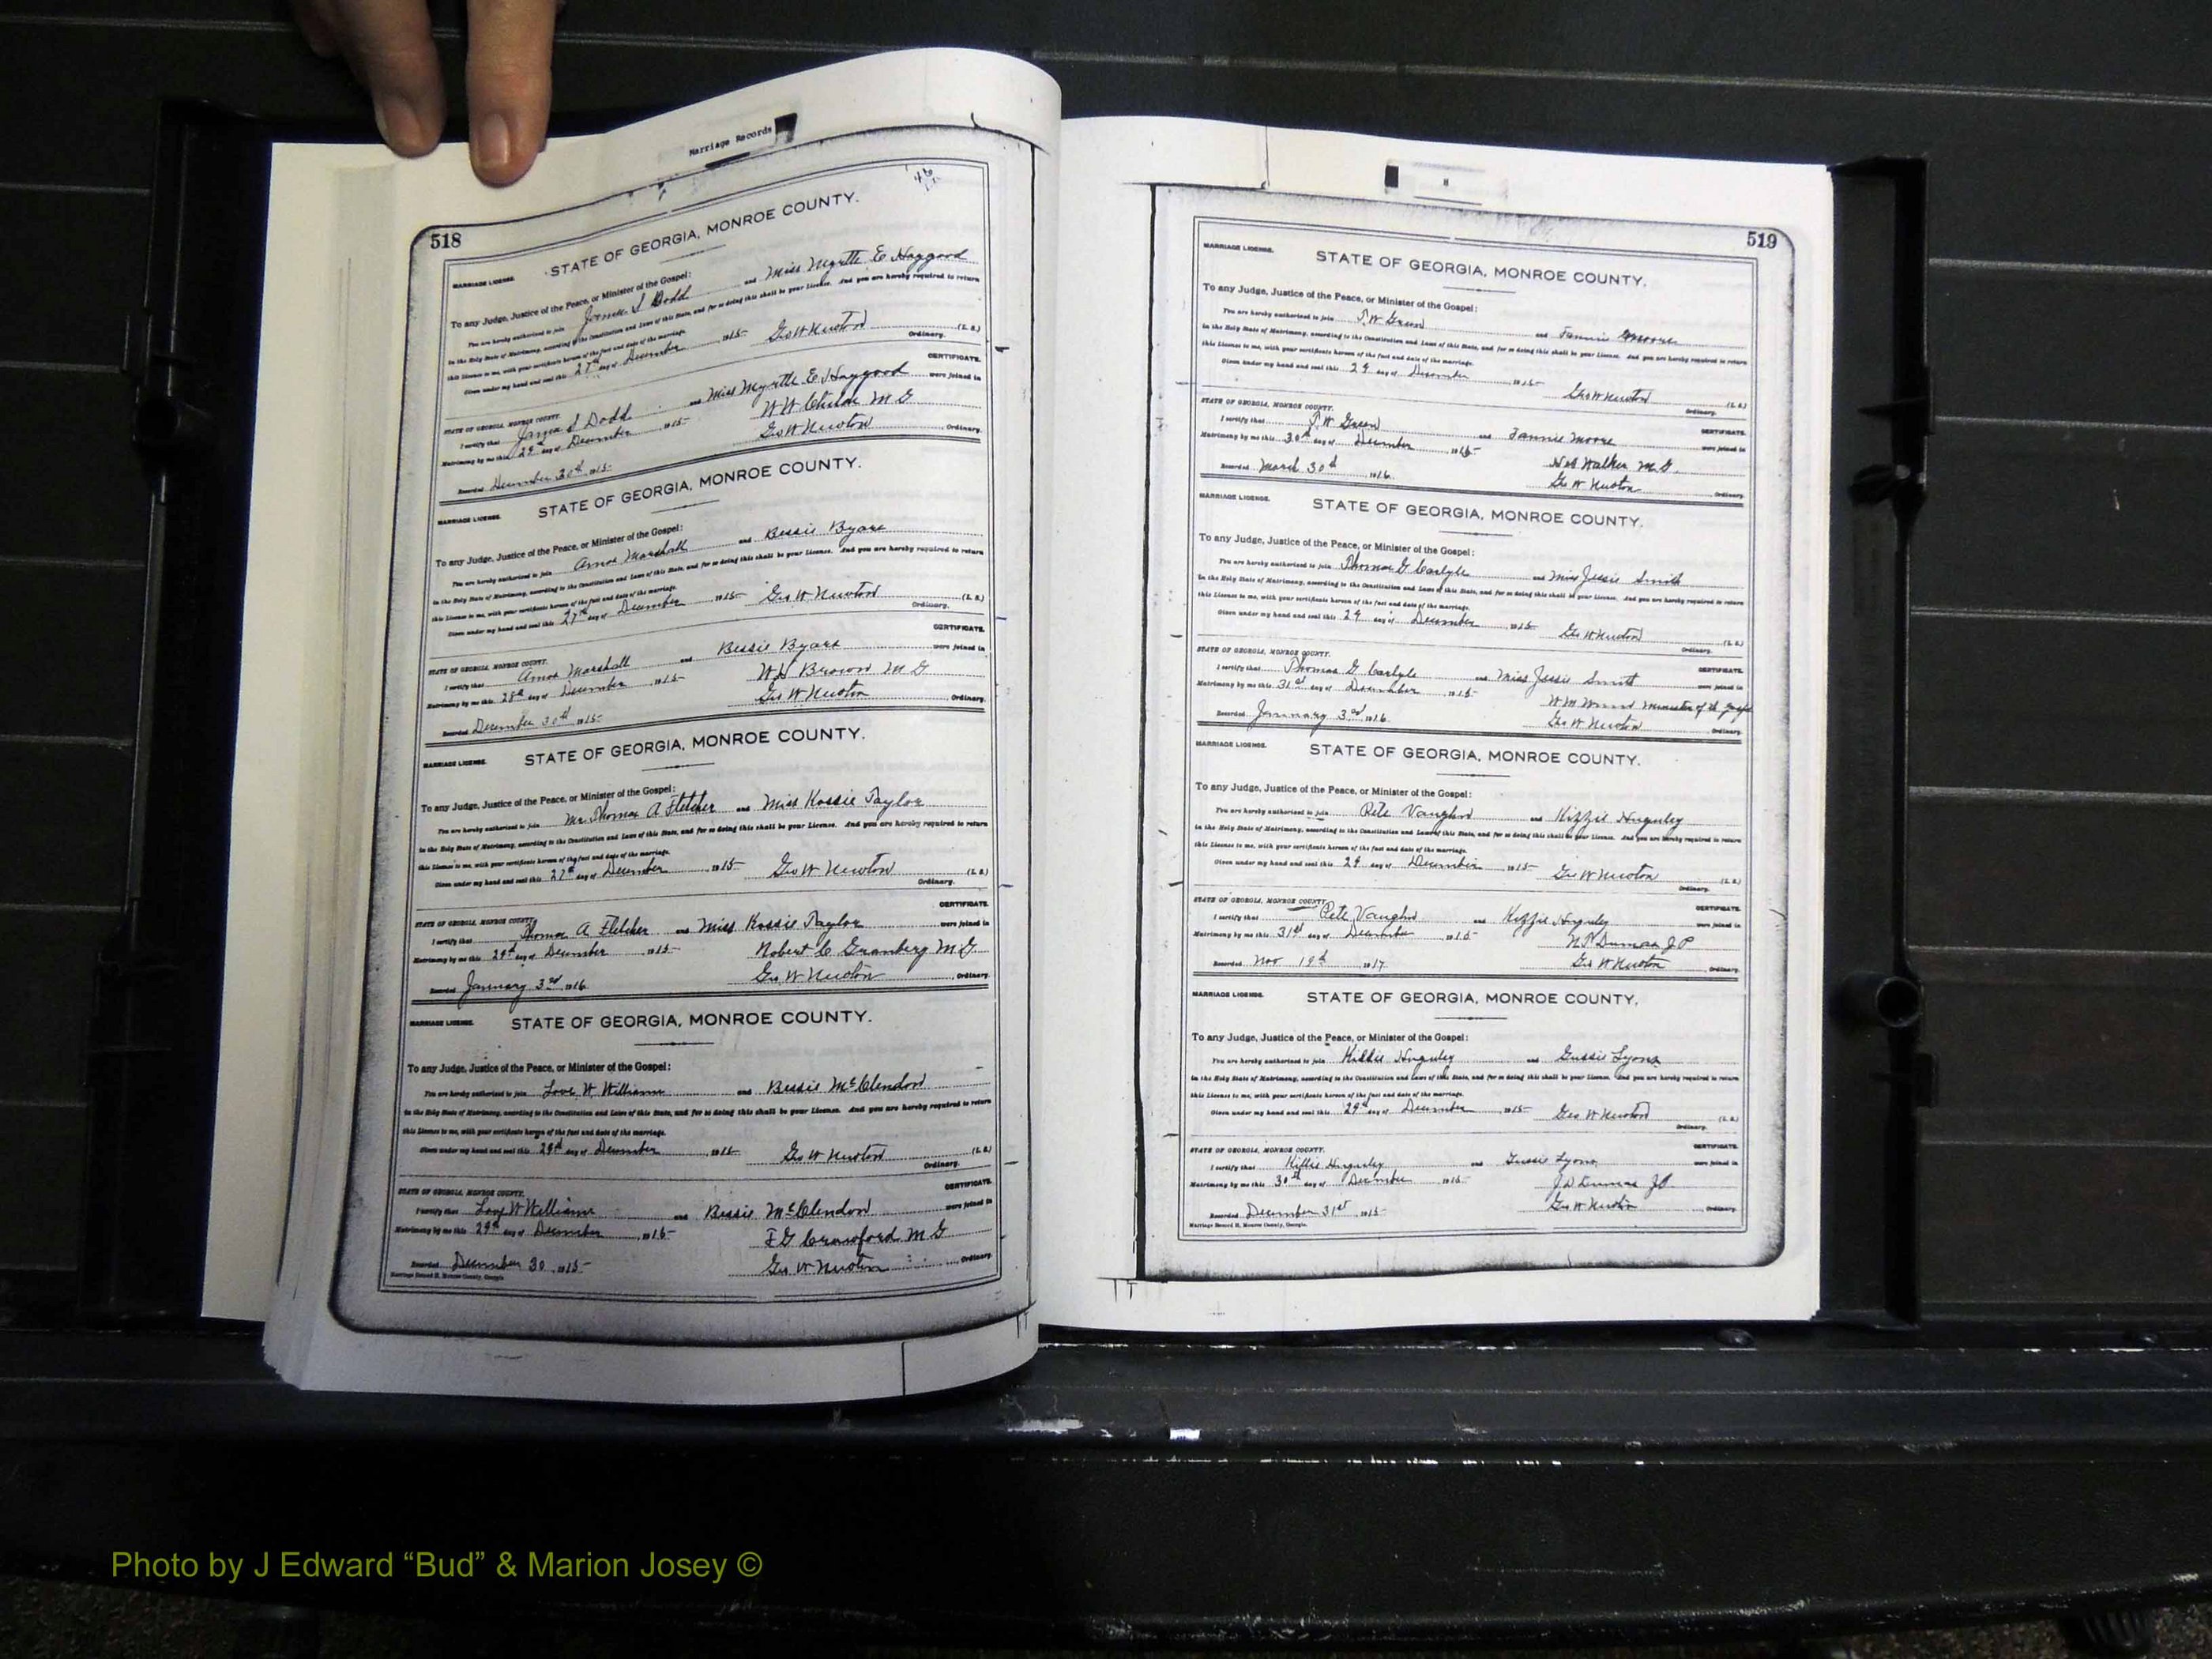 Marriage Records
518
STATE OF GEORGIA, MONROE COUNTY.
MARRIAGE LICENSE.
To any Judge, Justice of the Peace, or Minister of the Gospel:
You are hereby authorized to join James S Dodd and Miss Myrtle E Haygood
in the Holy State of Matrimony, according to the Constitution and Laws of this State, and for so doing this shall be your License. And you are hereby required to return
this License to me, with your certificate hereon of the fact and date of the marriage.
Given under my hand and seal this 27th day of December 1915 Geo W Newton (L. S.)
Ordinary.
CERTIFICATE.
STATE OF GEORGIA, MONROE COUNTY.
I certify that James S Dodd and Miss Myrtle E Haygood were joined in
Matrimony by me this 29th day of December 1915 W W Childs M G
Recorded December 30th 1915 Geo W Newton Ordinary.
STATE OF GEORGIA, MONROE COUNTY.
MARRIAGE LICENSE.
To any Judge, Justice of the Peace, or Minister of the Gospel:
You are hereby authorized to join Amos Marshall and Bessie Byars
in the Holy State of Matrimony, according to the Constitution and Laws of this State, and for so doing this shall be your License. And you are hereby required to return
this License to me, with your certificate hereon of the fact and date of the marriage.
Given under my hand and seal this 27th day of December 1915 Geo W Newton (L. S.)
Ordinary.
CERTIFICATE.
STATE OF GEORGIA, MONROE COUNTY.
I certify that Amos Marshall and Bessie Byars were joined in
Matrimony by me this 28th day of December 1915 W H Brown M G
Recorded December 30th 1915 Geo W Newton Ordinary.
STATE OF GEORGIA, MONROE COUNTY.
MARRIAGE LICENSE.
To any Judge, Justice of the Peace, or Minister of the Gospel:
You are hereby authorized to join Mr Thomas A Fletcher and Miss Kossie Taylor
in the Holy State of Matrimony, according to the Constitution and Laws of this State, and for so doing this shall be your License. And you are hereby required to return
this License to me, with your certificate hereon of the fact and date of the marriage.
Given under my hand and seal this 27th day of December 1915 Geo W Newton (L. S.)
Ordinary.
CERTIFICATE.
STATE OF GEORGIA, MONROE COUNTY.
I certify that Thomas A Fletcher and Miss Kossie Taylor were joined in
Matrimony by me this 29th day of December 1915 Robert C Granberg M G
Recorded January 3rd 1916 Geo W Newton Ordinary.
MARRIAGE LICENSE. STATE OF GEORGIA, MONROE COUNTY.
To any Judge, Justice of the Peace, or Minister of the Gospel:
You are hereby authorized to join Love W Williams and Bessie McClendon
in the Holy State of Matrimony, according to the Constitution and Laws of this State, and for so doing this shall be your License. And you are hereby required to return
this License to me, with your certificate hereon of the fact and date of the marriage.
Given under my hand and seal this 29th day of December 1915 Geo W Newton (L. S.)
Ordinary.
CERTIFICATE.
STATE OF GEORGIA, MONROE COUNTY.
I certify that Love W Williams and Bessie McClendon were joined in
Matrimony by me this 29th day of December 1915 F G Crawford M G
Recorded December 30 1915 Geo W Newton Ordinary.
Marriage Record H, Monroe County, Georgia.
519
MARRIAGE LICENSE.
STATE OF GEORGIA, MONROE COUNTY.
To any Judge, Justice of the Peace, or Minister of the Gospel:
You are hereby authorized to join J. W Green and Fannie Moore
in the Holy State of Matrimony, according to the Constitution and Laws of this State, and for so doing this shall be your License. And you are hereby required to return
this License to me, with your certificate hereon of the fact and date of the marriage.
Given under my hand and seal this 29 day of December 1915 Geo W Newton (L. S.)
Ordinary.
STATE OF GEORGIA, MONROE COUNTY.
CERTIFICATE.
I certify that J. W Green and Fannie Moore were joined in
Matrimony by me this 30th day of December 1915 Walker M. G.
Recorded March 30th 1916 Geo W Newton Ordinary.
MARRIAGE LICENSE.
STATE OF GEORGIA, MONROE COUNTY.
To any Judge, Justice of the Peace, or Minister of the Gospel:
You are hereby authorized to join Thomas G Carlyle and Miss Jessie Smith
in the Holy State of Matrimony, according to the Constitution and Laws of this State, and for so doing this shall be your License. And you are hereby required to return
this License to me, with your certificate hereon of the fact and date of the marriage.
Given under my hand and seal this 29 day of December 1915 Geo W Newton (L. S.)
Ordinary.
STATE OF GEORGIA, MONROE COUNTY.
CERTIFICATE.
I certify that Thomas G Carlyle and Miss Jessie Smith were joined in
Matrimony by me this 31st day of December 1915 W M Minister of the Gospel
Recorded January 3rd 1916 Geo W Newton Ordinary.
MARRIAGE LICENSE.
STATE OF GEORGIA, MONROE COUNTY.
To any Judge, Justice of the Peace, or Minister of the Gospel:
You are hereby authorized to join Pete Vaughn and Kizzie Huguley
in the Holy State of Matrimony, according to the Constitution and Laws of this State, and for so doing this shall be your License. And you are hereby required to return
this License to me, with your certificate hereon of the fact and date of the marriage.
Given under my hand and seal this 29 day of December 1915 Geo W Newton (L. S.)
Ordinary.
STATE OF GEORGIA, MONROE COUNTY.
CERTIFICATE.
I certify that Pete Vaughn and Kizzie Huguley were joined in
Matrimony by me this 31st day of December 1915 Dumas J P
Recorded Nov 19th 1917 Geo W Newton Ordinary.
MARRIAGE LICENSE.
STATE OF GEORGIA, MONROE COUNTY.
To any Judge, Justice of the Peace, or Minister of the Gospel:
You are hereby authorized to join Huguley and Gussie Lyons
in the Holy State of Matrimony, according to the Constitution and Laws of this State, and for so doing this shall be your License. And you are hereby required to return
this License to me, with your certificate hereon of the fact and date of the marriage.
Given under my hand and seal this 29th day of December 1915 Geo W Newton (L. S.)
Ordinary.
STATE OF GEORGIA, MONROE COUNTY.
CERTIFICATE.
I certify that Huguley and Gussie Lyons were joined in
Matrimony by me this 30th day of December 1915 Dumas J P.
Recorded December 31st 1915 Geo W Newton Ordinary.
Marriage Record H, Monroe County, Georgia.
Photo by J Edward “Bud” & Marion Josey ©